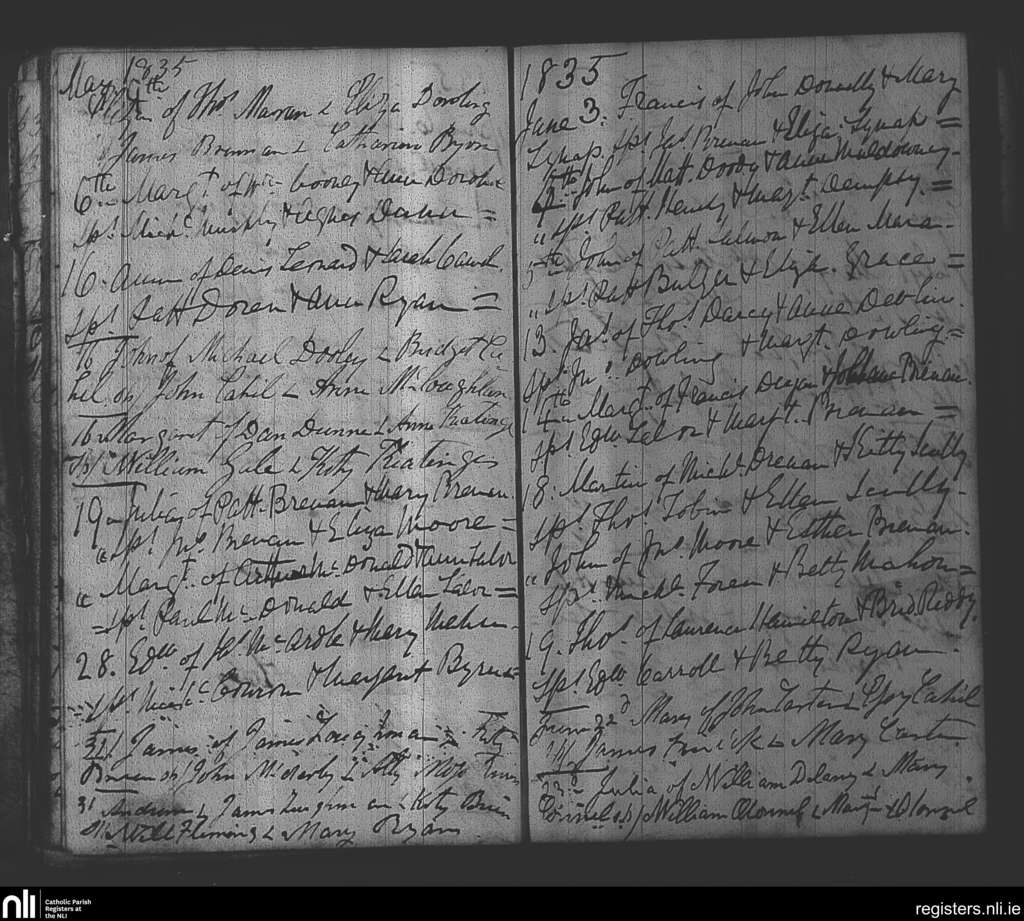 May 1835
of Thos Marran & Eliza Dowling
James Brennan & Catharine Ryan
6th Margt of Wm Cooney & Ann
sps Michl Murphy & Agnes Dunn =
16. Anne of Denis Leonard & Sarah
sps Patt Doran & Anne Ryan =
16 John of Michael Dooley & Bridget Ca
hel sps John Cahil & Anne McLoughlin
16 Margaret of Dan Dunne & Anne Keatinge
sps William Gale & Kitty Keatinges
19 Julia of Patt Brenan & Mary Brenan
" sps Jno Brenan & Eliza Moore =
" Margt of Arthur McDonald & Anne Lalor
= sps Paul McDonald & Ellen Lalor =
28. Edw of Js McArdle & Mary
sps & Margaret Byrne =
31 James of James & Kitty
sps John &
31 Andrew & James & Kitty
Sps Will Fleming & Mary Ryan
1835
June 3. Francis of John Donnelly & Mary
Synap. sps Js Brenan & Eliza. Synap =
4th John of Matt. Doody & Anne Muldowney.
" sps Patt Hendy & Margt. Dempsy. =
5th John of Patt Salmon & Ellen Mara.
" sps Patt Bulger & Eliza. Grace =
13. Jas of Thos Darcy & Anne Devlin.
sps Jno Dowling & Margt. Dowling =
14th Margt of Francis & Brenan.
sps Edw Lalor & Margt. Brenan =
18. Martin of Michl Brenan & Kitty Scully
sps Thos Tobin & Ellen Scully.
" John of Jno Moore & Esther Brenan.
sps Michl. Foren & Betty Mahon =
19. Thos of Laurence Hamilton & Brid Reddy.
sps Edw Carroll & Betty Ryan.
June 22d Mary of John Carter & Cahil
James & Mary Carter
23d Julia of William Delany & Mary
sps William OConnel & Mary OConnel
nli
Catholic Parish
Registers at
the NLI
registers.nli.ie